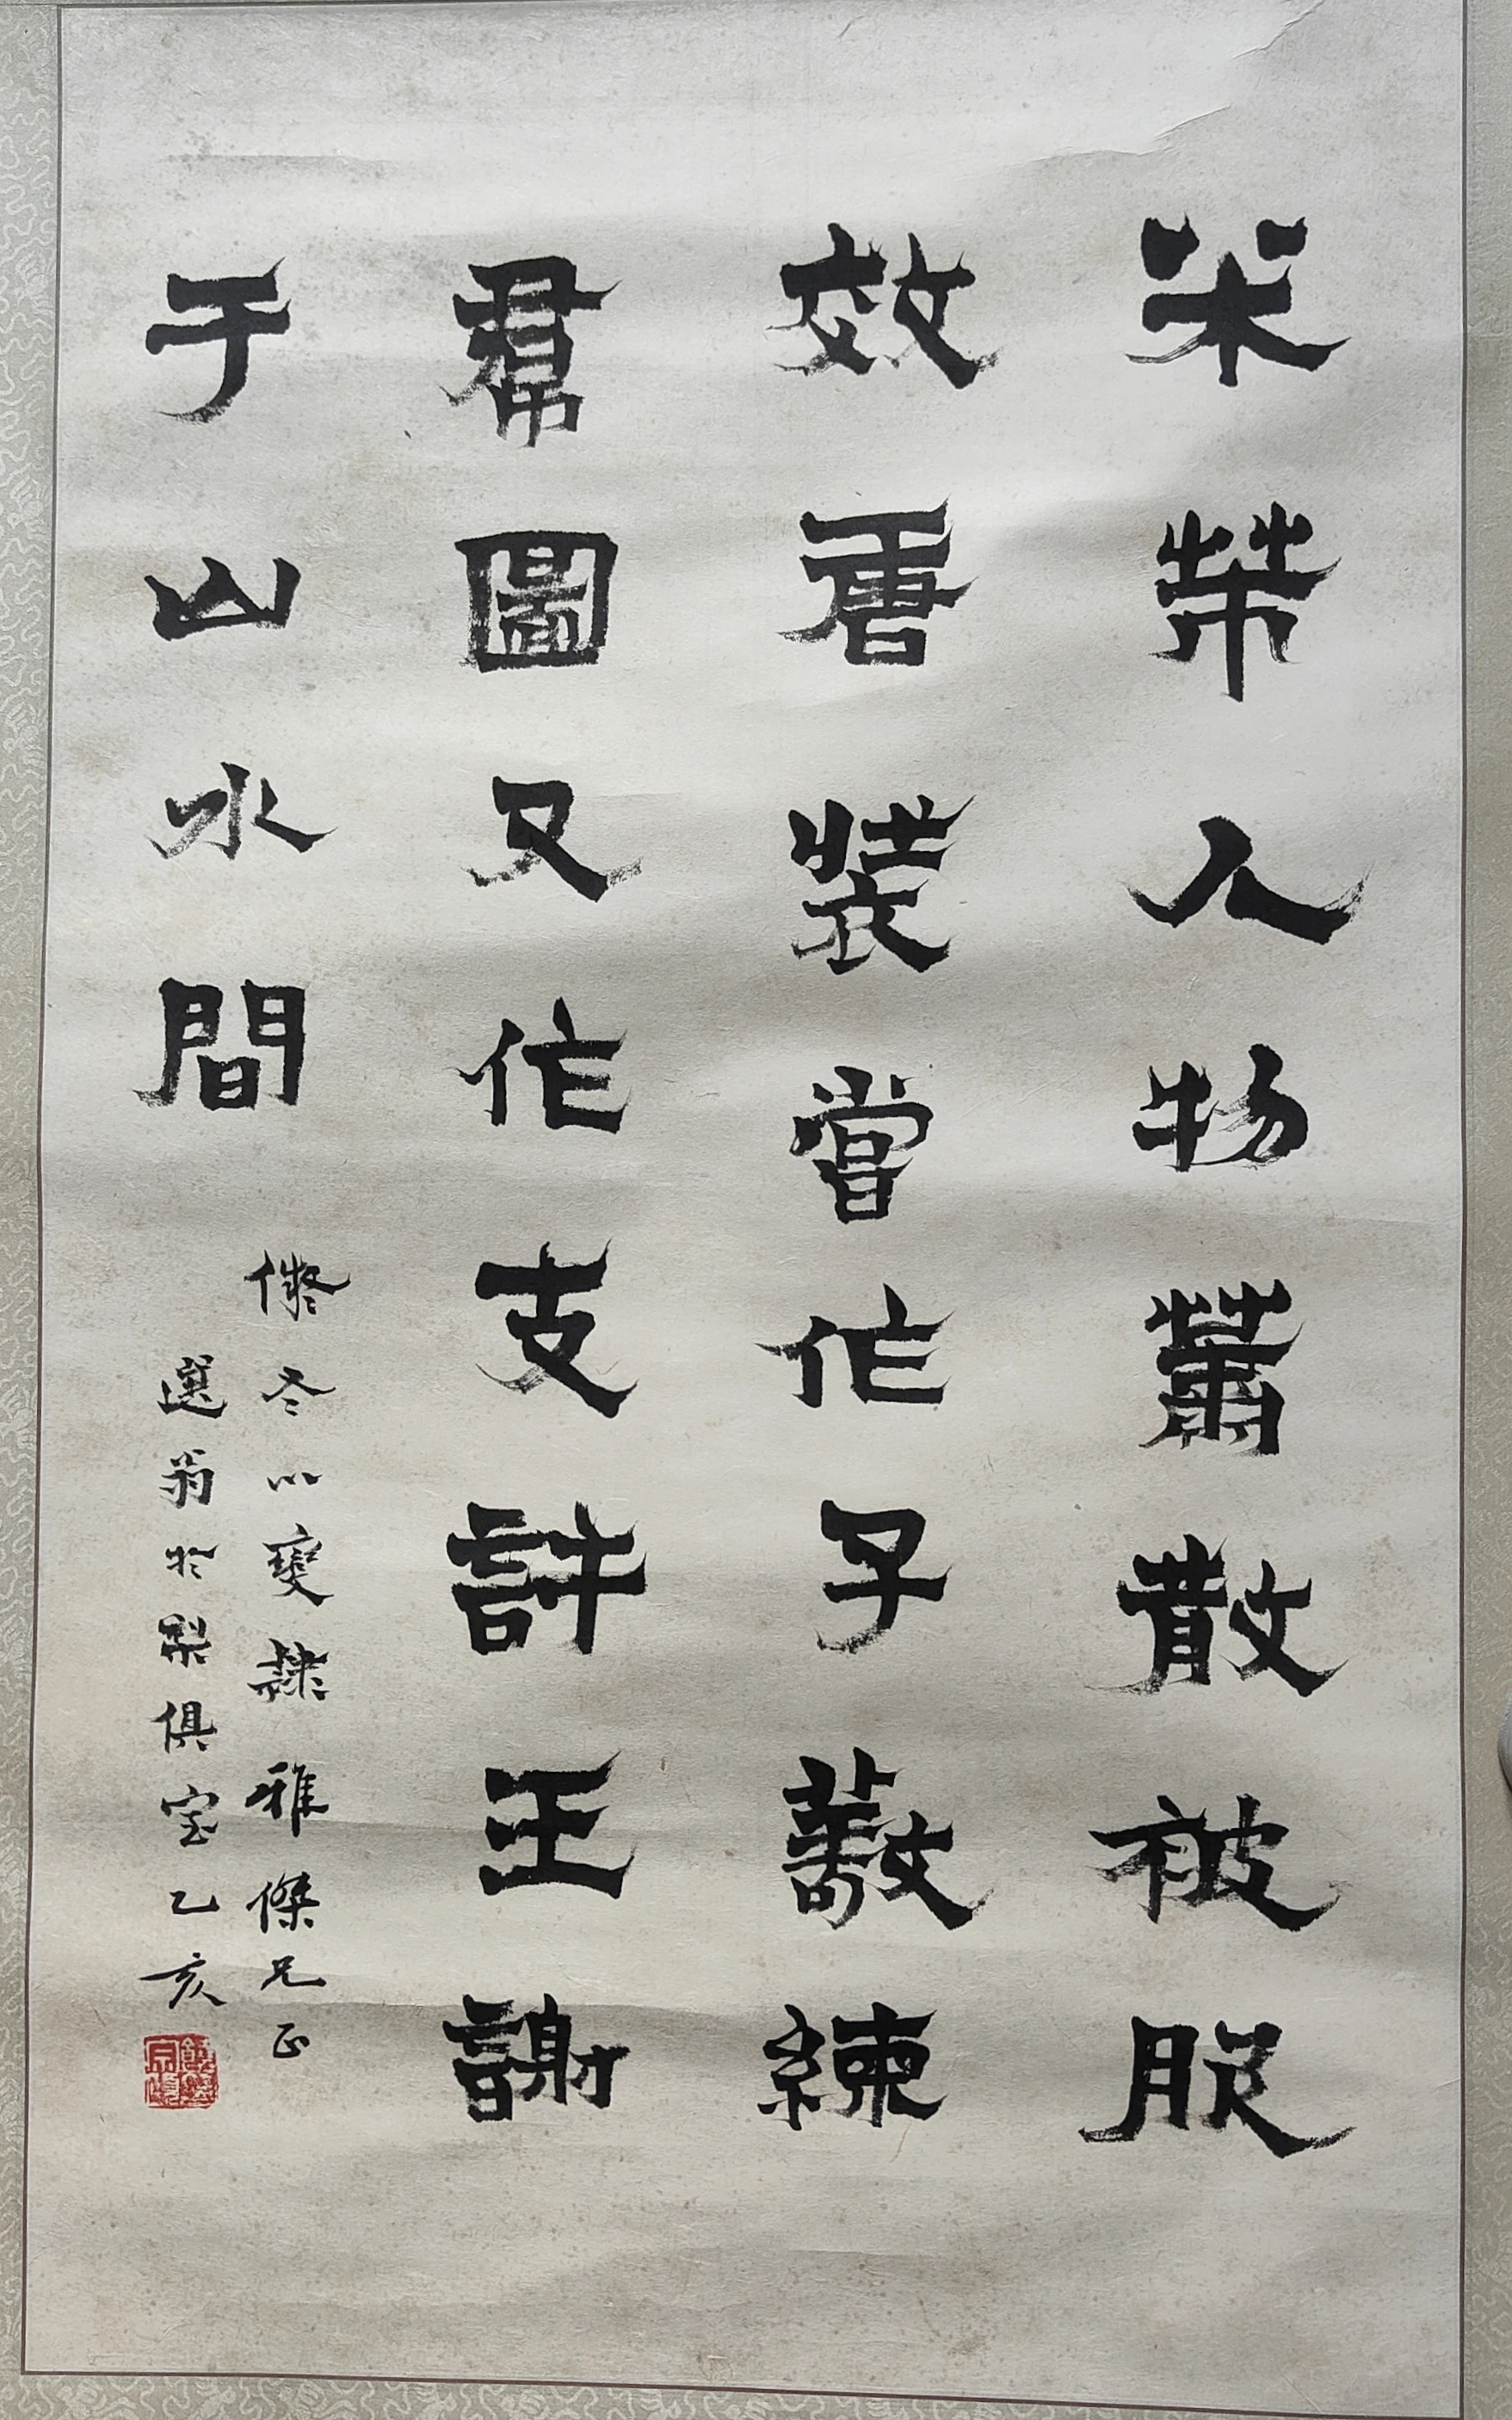 米芾人物蕭散被服
效唐裝嘗作子敬練
帬圖又作支許王謝
于山水間
儗冬心變隸 雅傑兄正
選翁於梨俱室乙亥